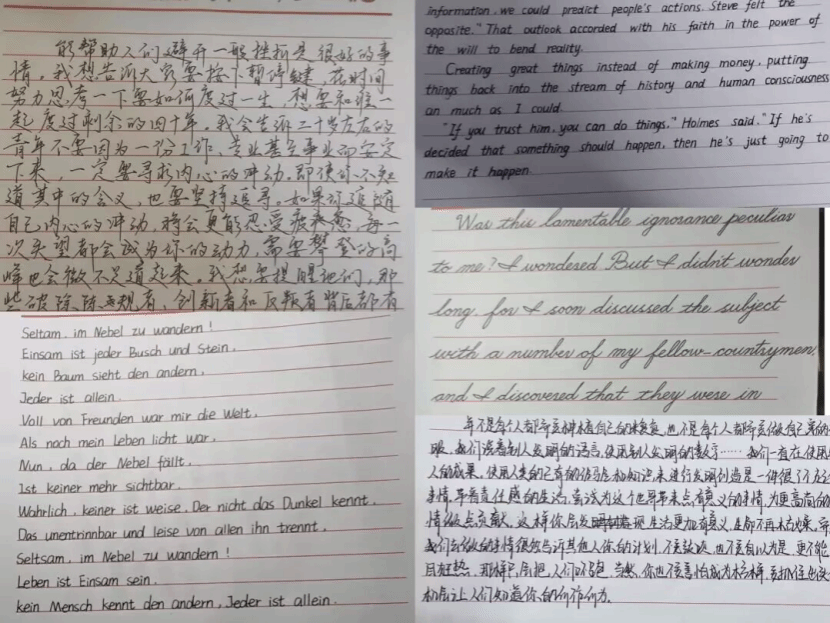 能帮助人们避开一般挫折是很好的事
情。我想告诉大家要按下暂停键，花时间
努力思考一下要如何度过一生，想要和谁一
起度过剩余的四十年。我会告诉二十岁左右的
青年不要因为一份工作、专业甚至事业而安定
下来，一定要寻找内心的冲动。即使你不知
道其中的含义，也要坚持追寻。如果你追随
自己内心的冲动，将会更能忍受疲惫，每一
次失望都会成为你的动力，需要攀登的高
峰也会微不足道起来。我想要提醒他们，那
些破除陈规者、创新者和反叛者背后都有
Seltsam, im Nebel zu wandern!
Einsam ist jeder Busch und Stein,
kein Baum sieht den andern,
Jeder ist allein.
Voll von Freunden war mir die Welt,
Als noch mein Leben licht war,
Nun, da der Nebel fällt,
Ist keiner mehr sichtbar.
Wahrlich, keiner ist weise, Der nicht das Dunkel kennt,
Das unentrinnbar und leise von allen ihn trennt.
Seltsam, im Nebel zu wandern!
Leben ist Einsam sein,
kein Mensch kennt den andern, Jeder ist allein.
information, we could predict people's actions. Steve felt the
opposite." That outlook accorded with his faith in the power of
the will to bend reality.
Creating great things instead of making money, putting
things back into the stream of history and human consciousness
an much as I could.
"If you trust him, you can do things," Holmes said. "If he's
decided that something should happen, then he's just going to
make it happen.
Was this lamentable ignorance peculiar
to me? I wondered. But I didn't wonder
long, for I soon discussed the subject
with a number of my fellow-countrymen,
and I discovered that they were in
年不是每个人都需要种植自己的粮食，也不是每个人都需要做自己穿的
服，我们说着别人发明的语言，使用别人发明的数学……我们一直在使用
人的成果。使用人类的已有的经验和知识来进行发明创造是一件很了不起
事情。带着责任感的生活，尝试为这个世界带来点有意义的事情，为更高尚的
情做点贡献。这样你会发现生活更加有意义，生命不再枯燥。
我们所做的事情很
目狂热，
机会让人们知道你的所作所为。